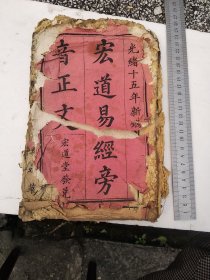 光緒十五年新
宏道易經旁
音正文
宏道堂發